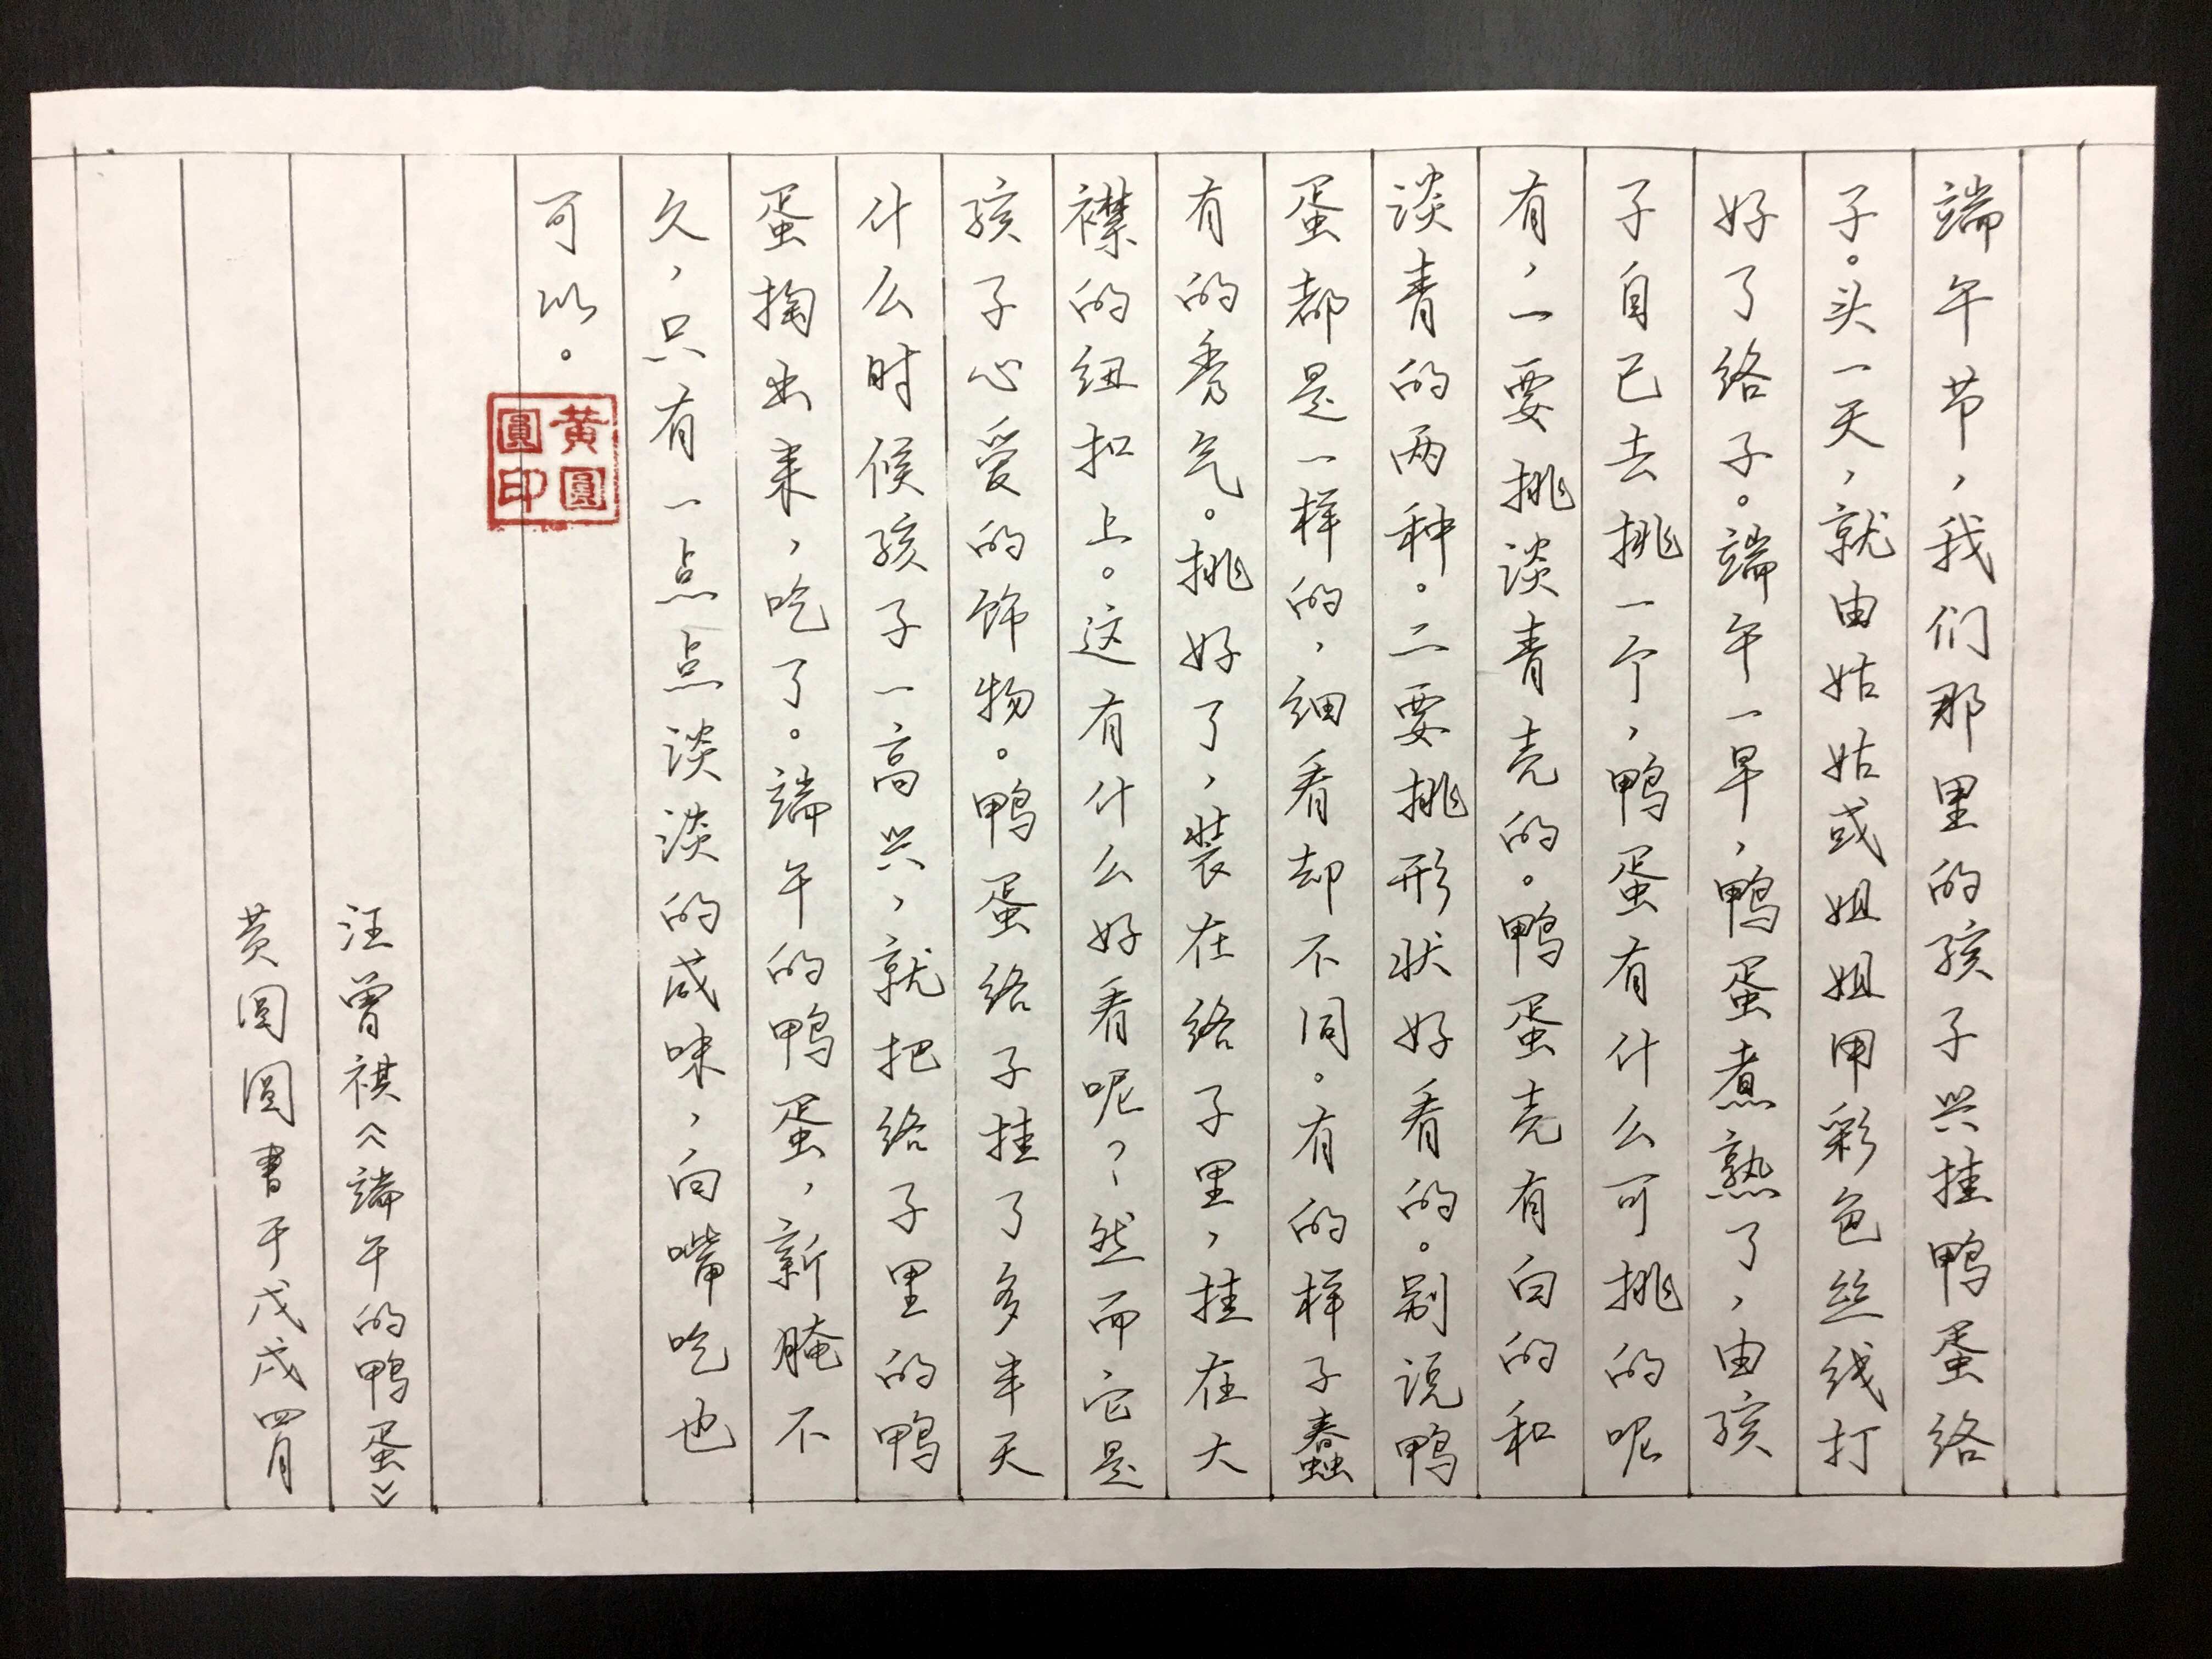 端午节，我们那里的孩子兴挂鸭蛋络
子。头一天，就由姑姑或姐姐用彩色丝线打
好了络子。端午一早，鸭蛋煮熟了，由孩
子自己去挑一个，鸭蛋有什么可挑的呢
有，一要挑淡青壳的。鸭蛋壳有白的和
淡青的两种。二要挑形状好看的。别说鸭
蛋都是一样的，细看却不同。有的样子蠢
有的秀气。挑好了，装在络子里，挂在大
襟的纽扣上。这有什么好看呢？然而它是
孩子心爱的饰物。鸭蛋络子挂了多半天
什么时候孩子一高兴，就把络子里的鸭
蛋掏出来，吃了。端午的鸭蛋，新腌不
久，只有一点点淡淡的咸味，白嘴吃也
可以。
黄圓圓印
汪曾祺《端午的鸭蛋》
黄圆圆書于戊戌四月